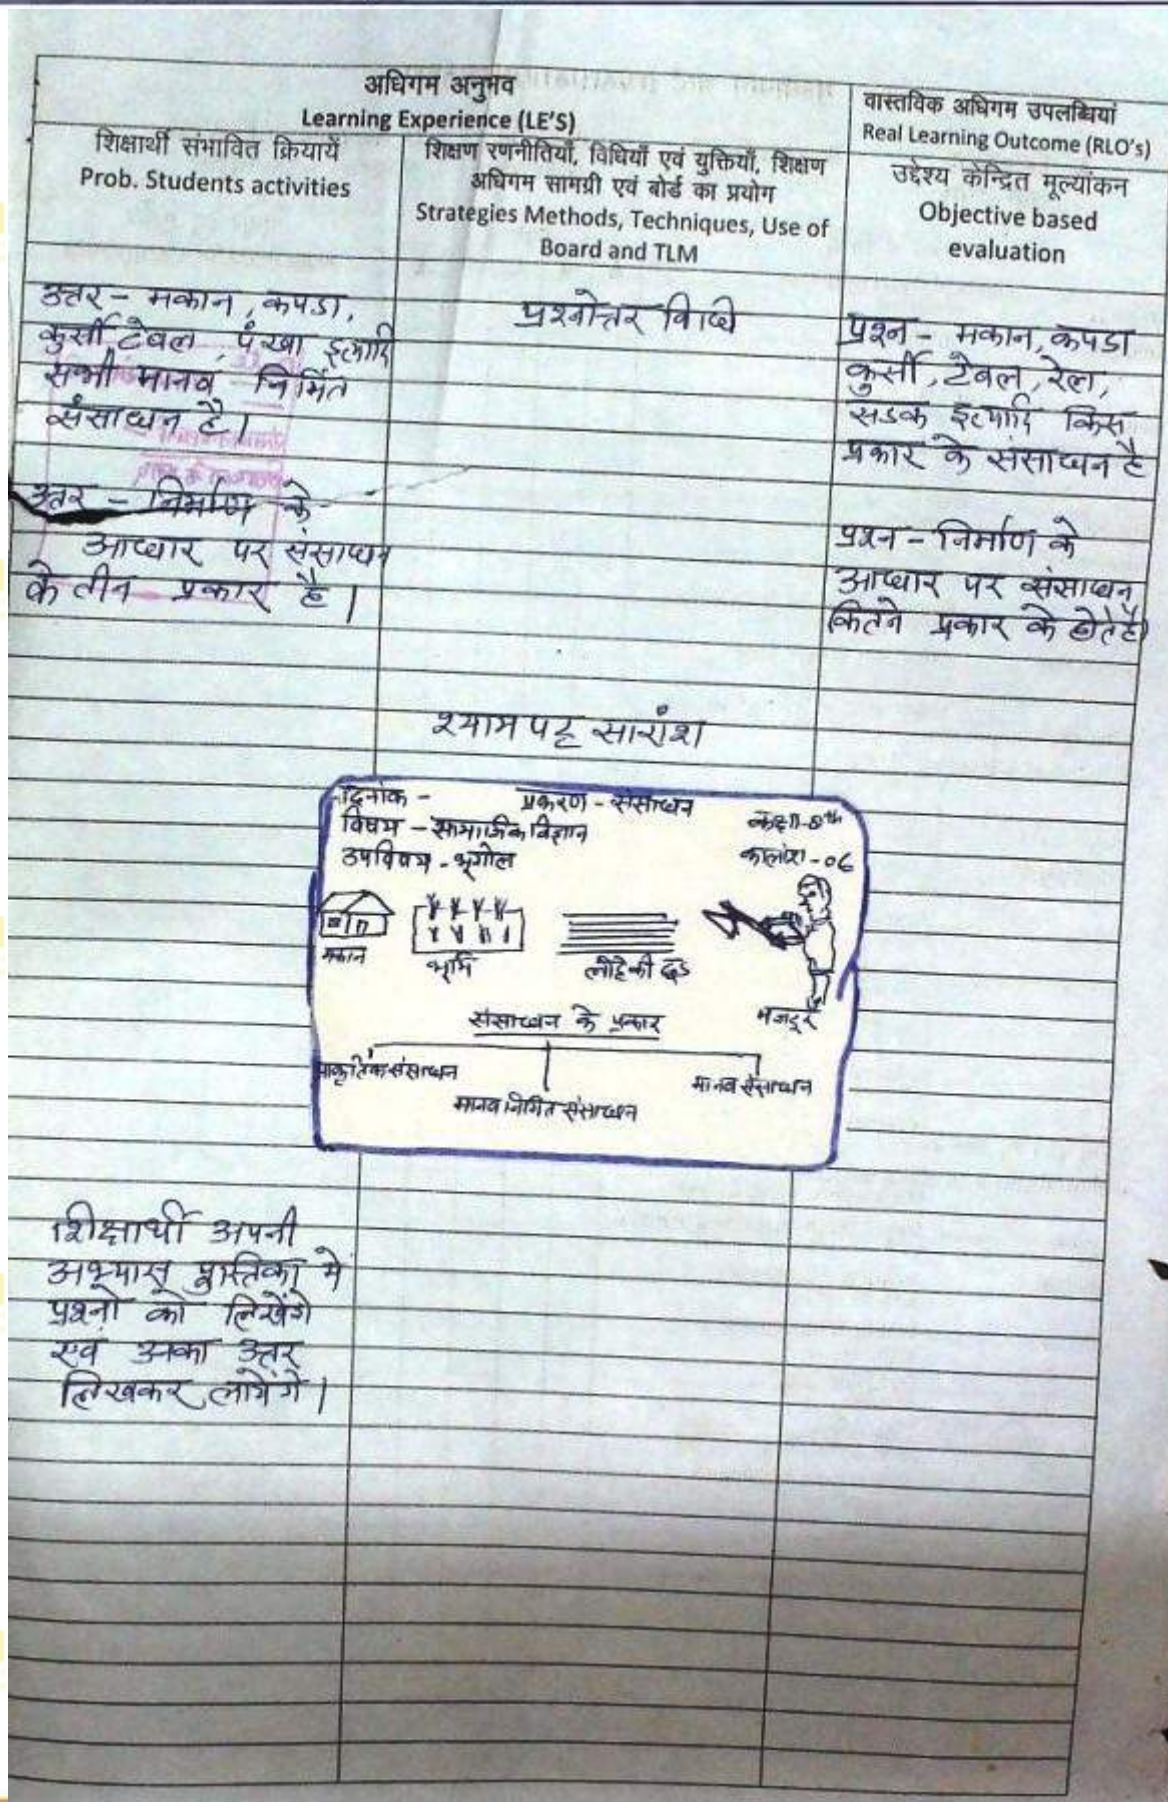 अधिगम अनुभव
Learning Experience (LE'S)
वास्तविक अधिगम उपलब्धियां
Real Learning Outcome (RLO's)
शिक्षार्थी संभावित क्रियायें
Prob. Students activities
शिक्षण रणनीतियाँ, विधियाँ एवं युक्तियाँ, शिक्षण
अधिगम सामग्री एवं बोर्ड का प्रयोग
Strategies Methods, Techniques, Use of
Board and TLM
उद्देश्य केन्द्रित मूल्यांकन
Objective based
evaluation
उत्तर - मकान, कपडा,
कुर्सी, टेबल, पंखा इत्यादि
सभी मानव निर्मित
संसाधन है।
प्रश्नोत्तर विधि
प्रश्न - मकान, कपडा
कुर्सी, टेबल, रेल,
सडक इत्यादि किस
प्रकार के संसाधन है
उत्तर - निर्माण के
आधार पर संसाधन
के तीन प्रकार है।
प्रश्न - निर्माण के
आधार पर संसाधन
कितने प्रकार के होते है
श्यामपट्ट सारांश
दिनांक - प्रकरण - संसाधन
विषय - सामाजिक विज्ञान कक्षा - 8th
उपविषय - भूगोल कालांश - 06
मकान
भूमि
लोहे की छड
मजदूर
संसाधन के प्रकार
प्राकृतिक संसाधन
मानव निर्मित संसाधन
मानव संसाधन
शिक्षार्थी अपनी
अभ्यास पुस्तिका में
प्रश्नों को लिखेंगे
एवं उनका उत्तर
लिखकर लायेंगे।